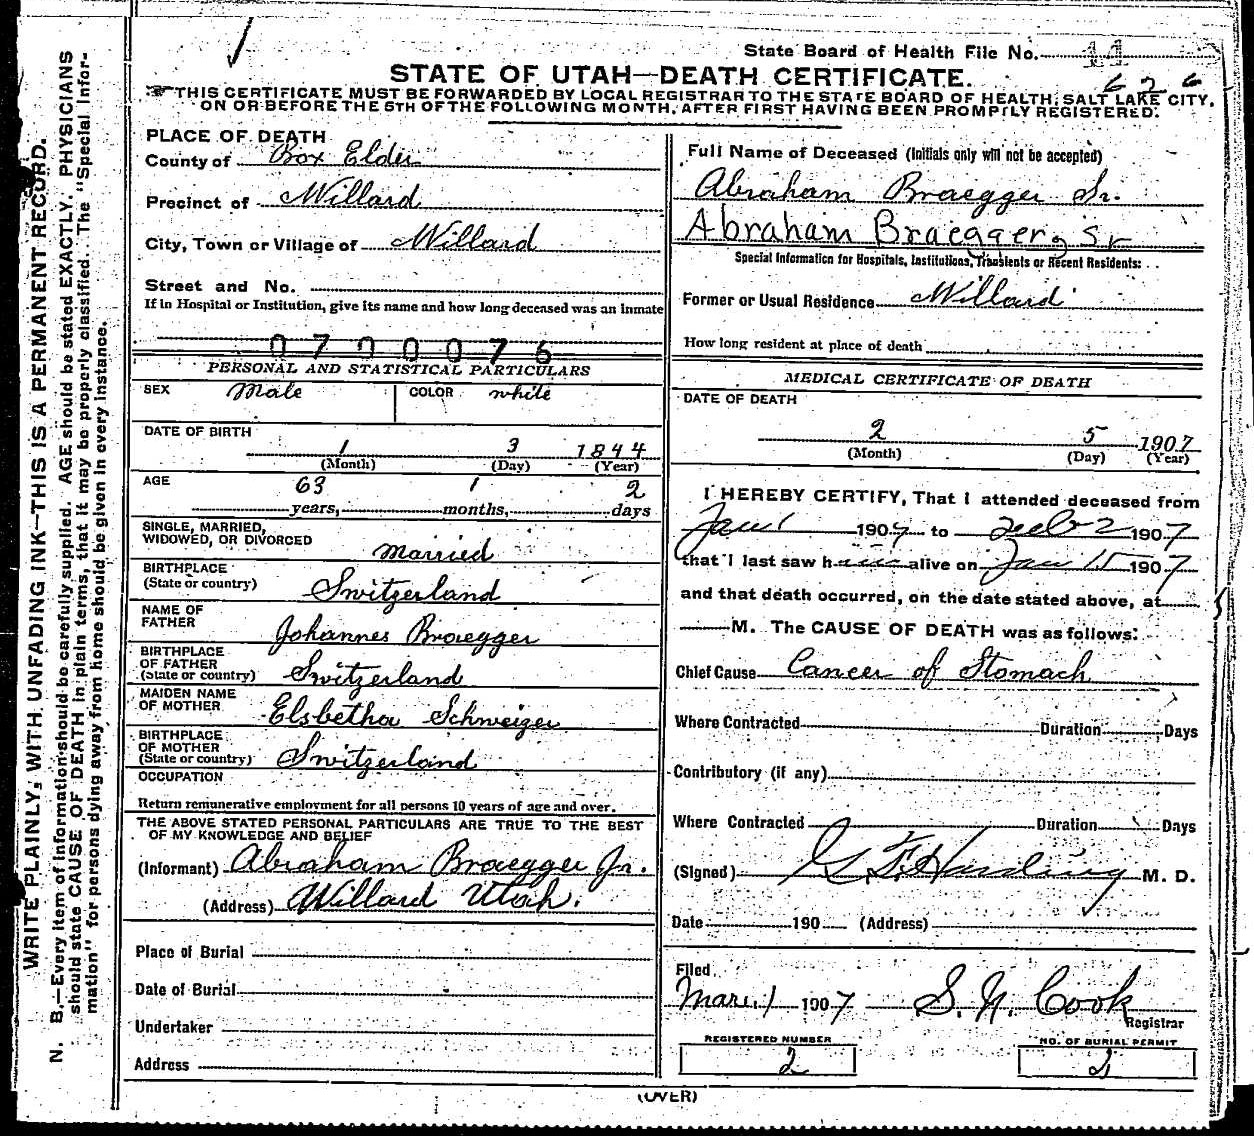 State Board of Health File No. 44
626
STATE OF UTAH—DEATH CERTIFICATE.
THIS CERTIFICATE MUST BE FORWARDED BY LOCAL REGISTRAR TO THE STATE BOARD OF HEALTH, SALT LAKE CITY,
ON OR BEFORE THE 5TH OF THE FOLLOWING MONTH, AFTER FIRST HAVING BEEN PROMPTLY REGISTERED.
WRITE PLAINLY, WITH UNFADING INK—THIS IS A PERMANENT RECORD.
N. B.—Every item of information should be carefully supplied. AGE should be stated EXACTLY. PHYSICIANS
should state CAUSE OF DEATH in plain terms, that it may be properly classified. The "Special Infor-
mation" for persons dying away from home should be given in every instance.
PLACE OF DEATH
County of Box Elder
Precinct of Willard
City, Town or Village of Willard
Street and No.
If in Hospital or Institution, give its name and how long deceased was an inmate
0700076
PERSONAL AND STATISTICAL PARTICULARS
SEX Male COLOR white
DATE OF BIRTH
1 3 1844
(Month) (Day) (Year)
AGE 63 1 2
years, months, days
SINGLE, MARRIED,
WIDOWED, OR DIVORCED married
BIRTHPLACE
(State or country) Switzerland
NAME OF
FATHER Johannes Braegger
BIRTHPLACE
OF FATHER
(State or country) Switzerland
MAIDEN NAME
OF MOTHER Elsbetha Schweizer
BIRTHPLACE
OF MOTHER
(State or country) Switzerland
OCCUPATION
Return remunerative employment for all persons 10 years of age and over.
THE ABOVE STATED PERSONAL PARTICULARS ARE TRUE TO THE BEST
OF MY KNOWLEDGE AND BELIEF
(Informant) Abraham Braegger Jr.
(Address) Willard Utah.
Place of Burial
Date of Burial
Undertaker
Address
Full Name of Deceased (Initials only will not be accepted)
Abraham Braegger Sr.
Abraham Braegger, Sr
Special Information for Hospitals, Institutions, Transients or Recent Residents:
Former or Usual Residence Willard
How long resident at place of death
MEDICAL CERTIFICATE OF DEATH
DATE OF DEATH
2 5 1907
(Month) (Day) (Year)
I HEREBY CERTIFY, That I attended deceased from
Jan 1 1907 to Feb 2 1907
that I last saw him alive on Jan 15 1907
and that death occurred, on the date stated above, at
M. The CAUSE OF DEATH was as follows:
Chief Cause Cancer of Stomach
Where Contracted Duration Days
Contributory (if any)
Where Contracted Duration Days
(Signed) G. F. Harding M. D.
Date 190 (Address)
Filed
Mar. 1 1907 S. N. Cook
Registrar
REGISTERED NUMBER NO. OF BURIAL PERMIT
2 2
(OVER)